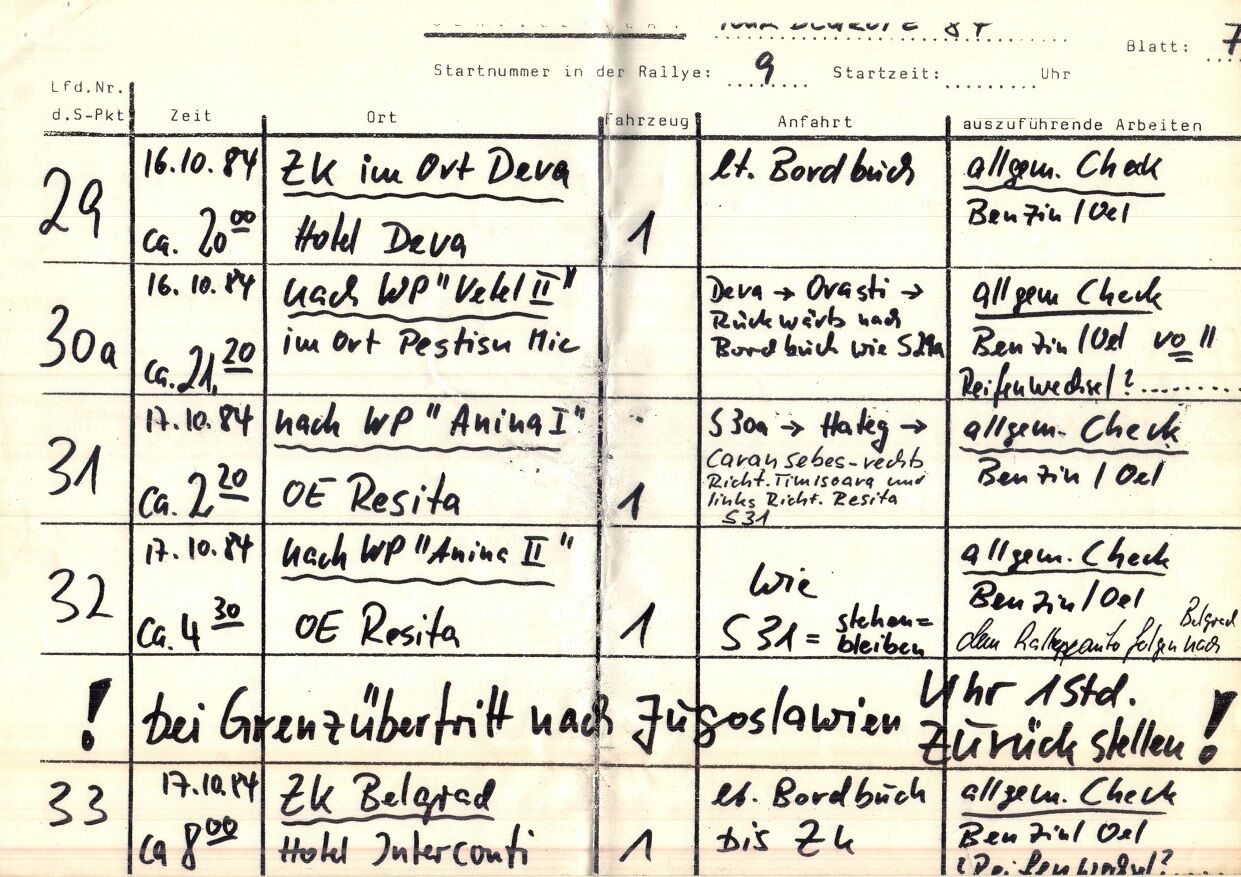 84
Blatt: 7
Startnummer in der Rallye: 9 Startzeit: Uhr
Lfd.Nr.
d.S-Pkt Zeit Ort Fahrzeug Anfahrt auszuführende Arbeiten
29
16.10.84
ca. 20 00
ZK im Ort Deva
Hotel Deva
1
lt. Bordbuch
allgem. Check
Benzin/Oel
30a
16.10.84
ca. 21, 20
nach WP "Vetel II"
im Ort Pestisu Mic
Deva → Orasti →
Rückwärts nach
Bordbuch wie S29a
allgem Check
Benzin/Oel
Reifenwechsel?..........
31
17.10.84
ca. 2 20
nach WP "Anina I"
OE Resita
1
S30a → Hateg →
Caransebes-rechts
Richt. Timisoara und
links Richt. Resita
S31
allgem. Check
Benzin/Oel
32
17.10.84
ca. 4 30
nach WP "Anina II"
OE Resita
1
wie
S31 = stehen=
bleiben
allgem. Check
Benzin/Oel
dem Rallyeauto folgen nach Belgrad
! bei Grenzübertritt nach Jugoslawien Uhr 1 Std.
zurückstellen!
33
17.10.84
ca 8 00
ZK Belgrad
Hotel Interconti
1
lt. Bordbuch
bis ZK
allgem. Check
Benzin/Oel
Reifenwechsel?